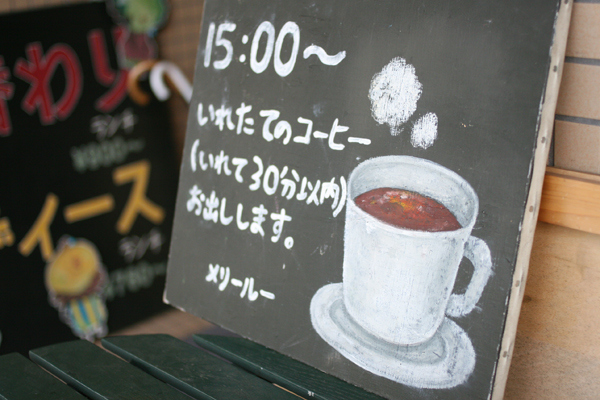 15:00～
いれたてのコーヒー
(いれて30分以内)
お出しします。
メリールー
わり
ランチ
¥900～
イース
ランチ
¥780～